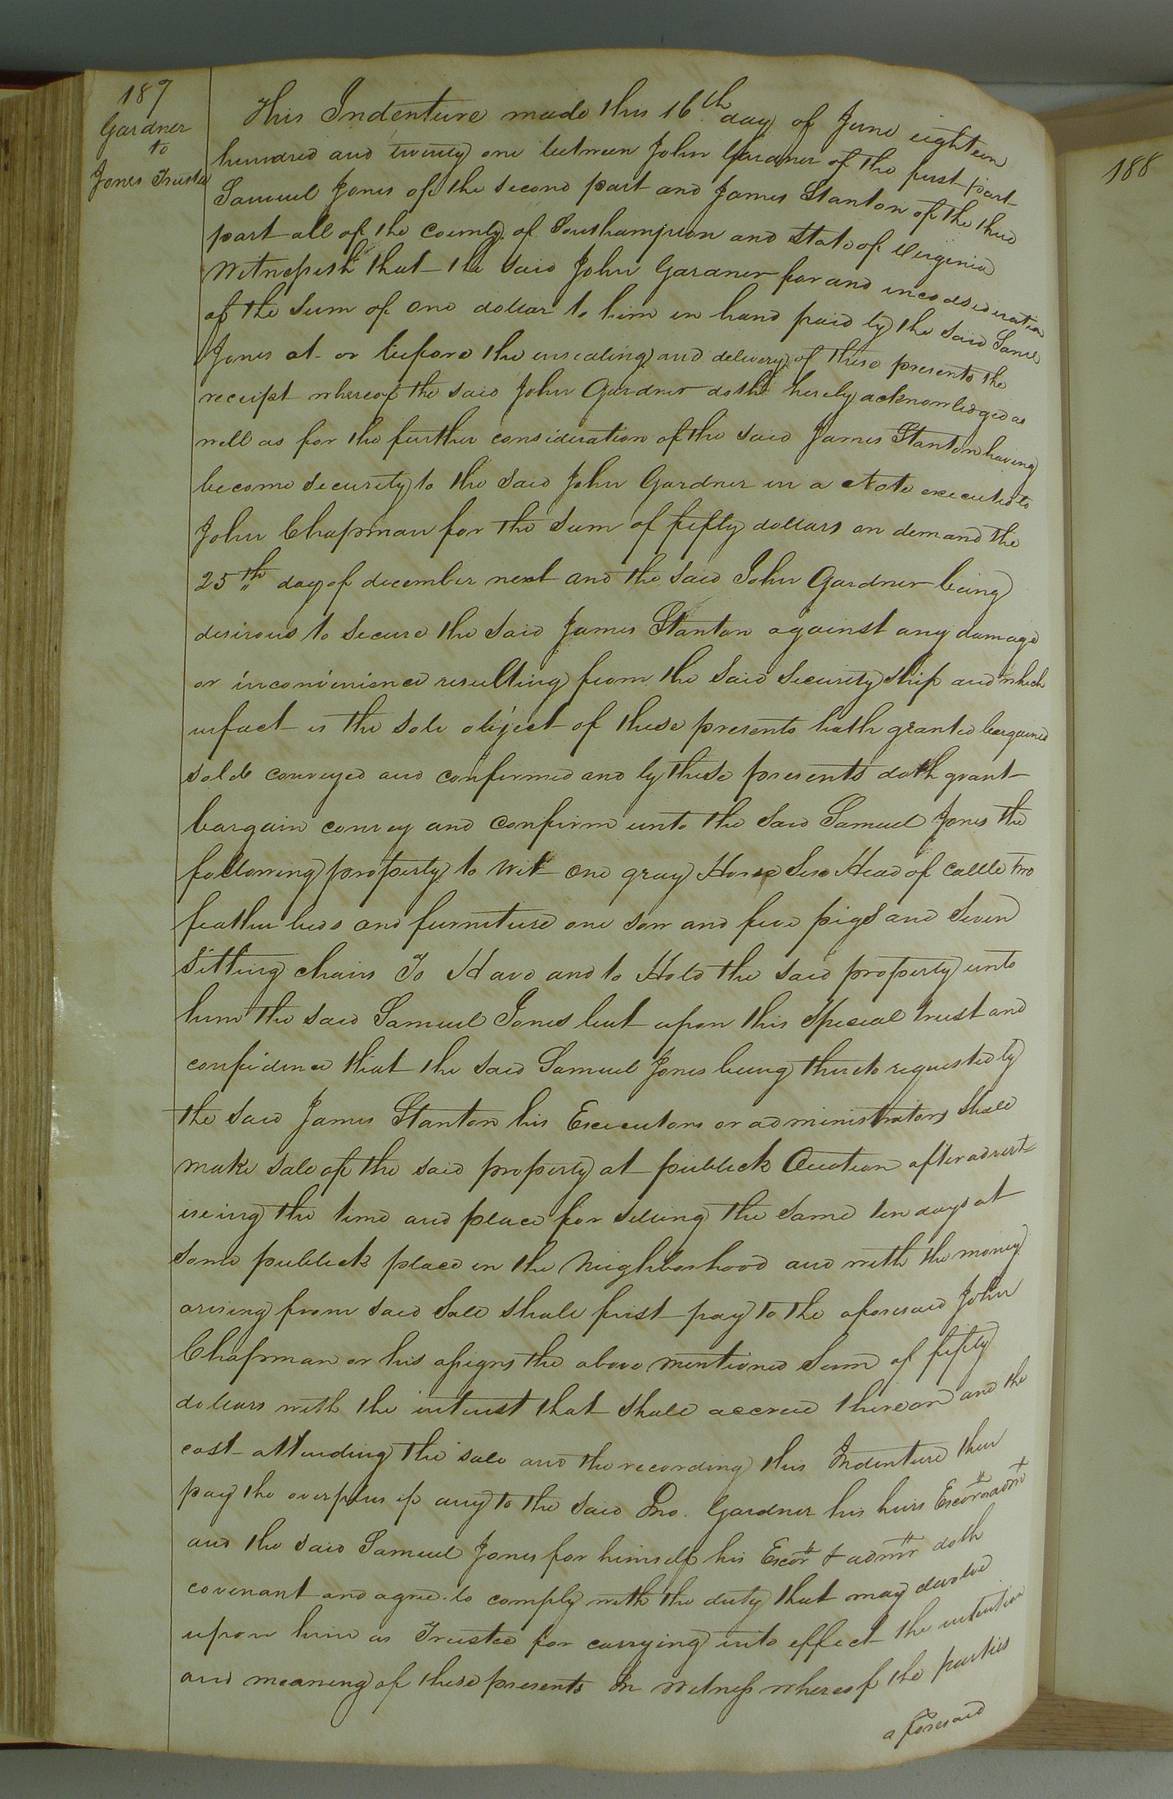 187
Gardner
to
Jones Trustee
This Indenture made this 16th day of June eighteen
hundred and twenty one between John Gardner of the first part
Samuel Jones of the second part and James Stanton of the third
part all of the County of Southampton and State of Virginia
Witnesseth that the said John Gardner for and in consideration
of the sum of one dollar to him in hand paid by the said Saml
Jones at or before the ensealing and delivery of these presents the
receipt whereof the said John Gardner doth hereby acknowledged as
well as for the further consideration of the said James Stanton having
become security to the said John Gardner in a Note executed to
John Chapman for the sum of fifty dollars on demand the
25th day of december next and the said John Gardner being
desirous to secure the said James Stanton against any damage
or inconvenience resulting from the said Security ship and which
infact is the sole object of these presents hath granted bargained
sold conveyed and confirmed and by these presents doth grant
bargain convey and confirm unto the said Samuel Jones the
following property to wit one gray Horse Six Head of cattle two
feather beds and furniture one sow and five pigs and Seven
Sitting chairs To Have and to Hold the said property unto
him the said Samuel Jones but upon this Special trust and
confidence that the said Samuel Jones being thereto requested by
the said James Stanton his Executors or administrators shall
make sale of the said property at publick Auction after advert=
iseing the time and place for selling the same ten days at
some publick place in the Neighborhood and with the money
arising from said sale shall first pay to the aforesaid John
Chapman or his assigns the above mentioned sum of fifty
dollars with the interest that shall accrue thereon and the
cost attending the sale and the recording this Indenture then
pay the overplus if any to the said Jno. Gardner his heirs Execr. or admr.
and the said Samuel Jones for himself his Execr. & admr. doth
covenant and agree to comply with the duty that may devolve
upon him as Trustee for carrying into effect the intention
and meaning of these presents In Witness whereof the parties
aforesaid
188